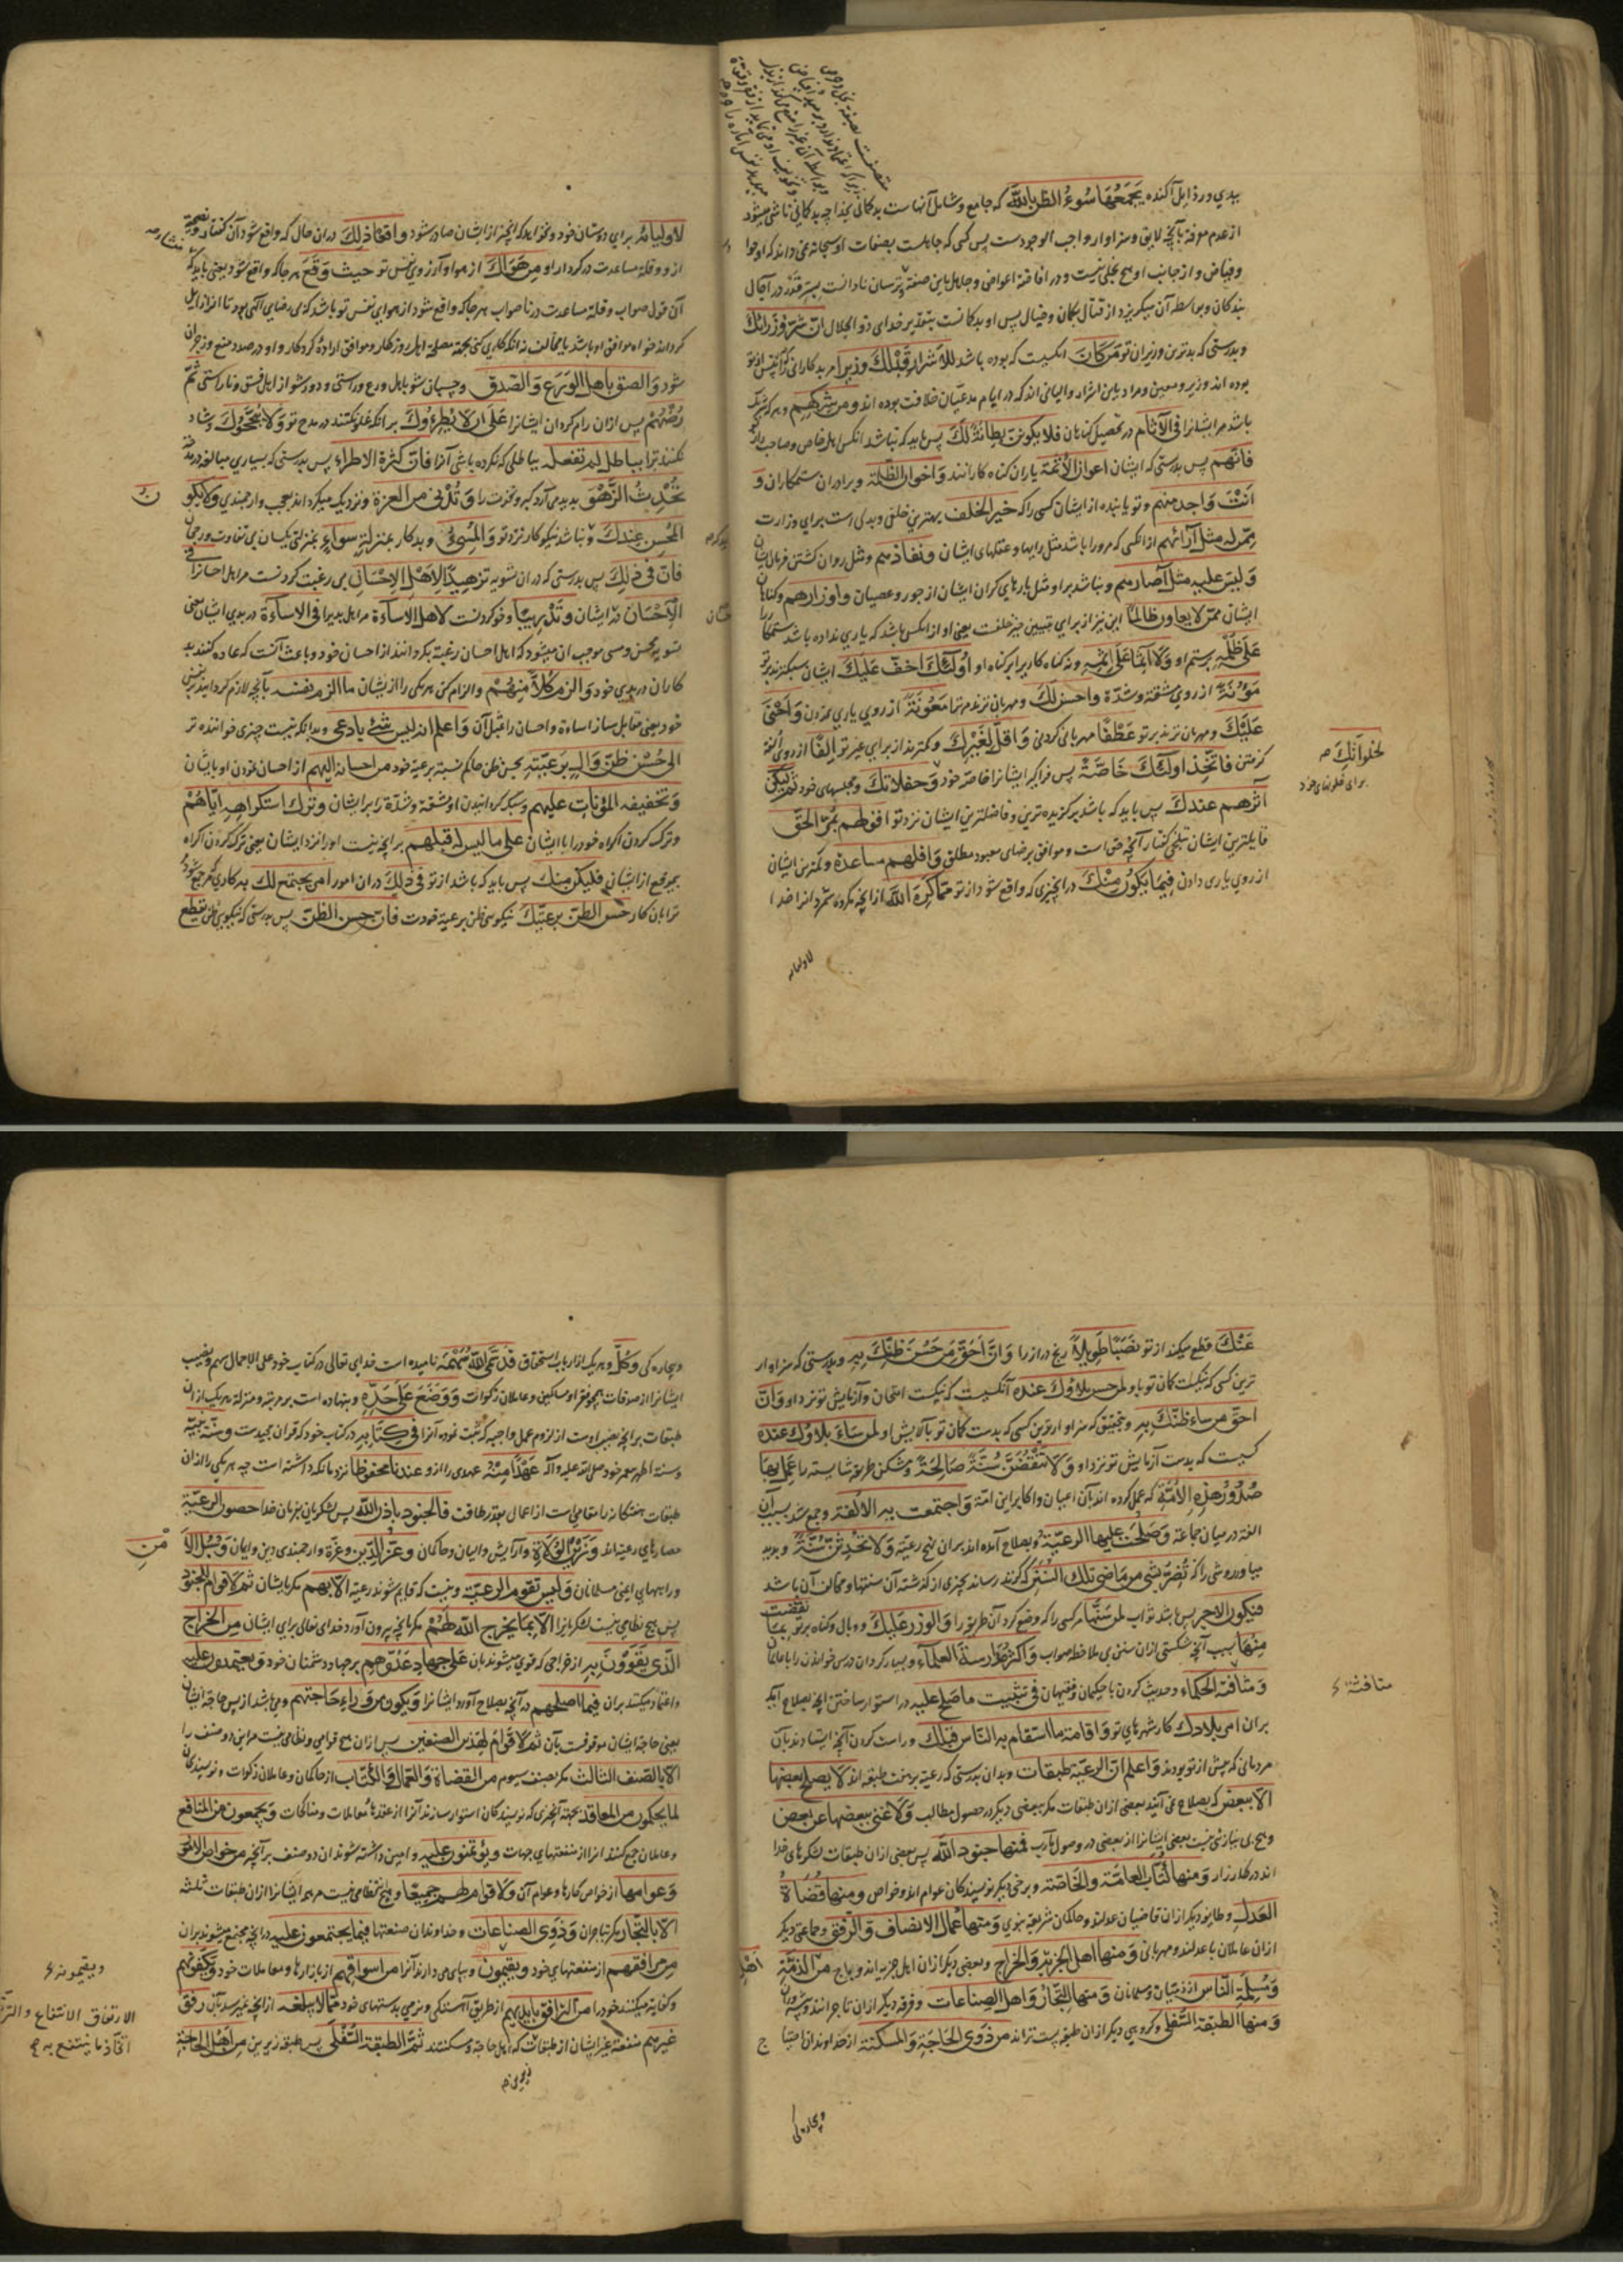 ببدي ورذايل آكنده يَجْمَعُهَا سُوءُ الظَّنِّ بِاللّٰهِ كه جامع وشامل آنهاست بدكماني بخدا چه بدكماني ناشي ميشود
از عدم معرفة بآنچه لايق وسزاوار واجب الوجودست پس كسى كه جاهلست بصفات او سبحانه نمى داند كه او جواد
وفياض و از جانب او هيچ بخلى نيست
بندكان وبواسطه آن ميكريزد از قتال بكمان وخيال پس او بدكمانست بتقدير خداى ذو الجلال اِنَّ شَرَّ وُزَرَائِكَ
وبدرستى كه بدترين وزيران تو مَنْ كَانَ انكسيت كه بوده باشد لِلْاَشْرَارِ قَبْلَكَ وَزِيرًا مر بدكاران را كه پيش از تو
بوده اند وزير ومعين ومراد باين اشرار واليانى اند كه در ايام مدعيان خلافت بوده اند ومن شركهم وهر كه شريك
باشد مر ايشانرا فى الْآثَام در تحصيل كناهان فلا يكونن بِطَانَةً لَكَ پس بايد كه نباشد انكس اهل خاص وصاحب راز
فَانّهم پس بدرستى كه ايشان اعوان الأثمة ياران كناه كارانند وَاخوان الظَّلَمَة وبرادران ستمكاران وَ
اَنْتَ وَاجِد منهم وتو يابنده از ايشان كسى را كه خير الخلف بهترين خلفى وبدلى است براى وزارت
مِمَّن له مثل آرائهم ازانكسى كه مر ورا باشد مثل رايها وعقلهاى ايشان ونفاذهم ومثل روان كشتن فرمان ايشان
وَليسَ عليه مثل آصارهم ونباشد بر او مثل بارهاى كران ايشان از جور وعصيان واوزارهم وكناهان
ايشان ممّن لا يعاون ظالمًا اين نيز از براى تبيين خير خلفست يعنى او ازانكس باشد كه يارى نداده باشد ستمكار را
عَلَى ظُلْمِهِ بر ستم او وَلَا آثِمًا عَلَى اِثْمِهِ ونه كناه كار را بر كناه او اُولٰئِكَ اَخَفُّ عَلَيْكَ ايشان سبكترند بر تو
مَؤُنَةً از روى مشقة وشدّة وَاَحسن لَكَ ومهربانترند مر ترا مَعُونَةً از روى يارى نمودن وَاَحْنَى
عَلَيْكَ ومهربان ترند بر تو عَطْفًا مهربانى كردنى وَاَقَلُّ لِغَيْرِكَ وكمترند از براى غير تو اِلْفًا از روى الفة
كرفتن فَاتَّخِذ اُولٰئِكَ خَاصَّةً پس فراكير ايشانرا خاصّه خود وَحفلاتك ومجلسهاى خود ثم ليكن
آثرهم عندك پس بايد كه باشد بركزيده ترين وفاضلترين ايشان نزد تو اقولهم بِمُرِّ الْحَقِّ
قايلترين ايشان بتلخى كفتار آنچه حق است وموافق برضاى معبود مطلق وَاقلهم مساعدة وكمترين ايشان
از روى يارى دادن فِيمَا يَكُونُ مِنْكَ در انچيزى كه واقع شود از تو مِمَّا كَرِهَ اللّٰهُ از انچه مكروه شمرد انرا خدا
لاوليائه
لخلواتك
براى خلوتهاى خود
لاوليائه براي دوستان خود ونخواهد كه انچه از ايشان صادر شود واقعًا ذلك دران حال كه واقع شود آن كفتار ونصيحة
از و وقلة مساعدت در كردار او من هَوَاكَ از هوا و آرزوى نفس تو حيث وَقَعَ هر جا كه واقع شود يعنى بايد كه
آن قول صواب وقلة مساعدت در ناصواب هر جا كه واقع شود از هواى نفس تو باشد
شود وَالصق باهل الوَرَع وَالصّدق وچسپان شو باهل ورع وراستى ودور شو از اهل فسق وناراستى ثمّ
رُضْهُمْ پس ازان رام كردان ايشانرا عَلَى ان لَا يُطْرُوكَ بر انكه غلو نكنند در مدح تو وَلَا يُبَجِّحُوكَ وشاد
نكنند ترا بباطل لم تفعله بباطلى كه نكرده باشى آنرا فَانّ كثرة الاطراء پس بدرستى كه بسيارى مبالغه در مدح
تُحْدِثُ الزَّهْوَ پديد مى آرد كبر ونخوت را وَتُدْنى من العزة ونزديك ميكرداند بعجب وارجمندى وَلَا يكون
المحسن عِندَكَ ونباشد نيكو كار نزد تو وَالمُسِئُ وبدكار بمنزلة سواءٍ بمنزلتى يكسان بى تفاوت ورجحان
فَانّ فى ذلِكَ پس بدرستى كه دران تسويه تَزهِيدًا لِاَهْلِ الاِحْسَانِ بى رغبت كردنست مر اهل احسانرا فى
الاِحْسَان در ايشان وَتَدْرِيبًا وخو كردنست لاهل الاسَاءة مر اهل بدى را فى الاساءة در بدى ايشان يعنى
تسويه محسن ومسى موجب ان ميشود كه اهل احسان رغبة بكردانند از احسان خود وباعث آنست كه عاده كنند بد
كاران در بدى خود وَالزم كُلًّا مِنْهُمْ والزام كن هر يكى را از ايشان ما الزم نفسه بآنچه لازم كردانيد بر نفس
خود يعنى مقابل ساز اساءة واحسان را بمثل آن وَاعلم انه ليس شئ بادعى وبدانكه نيست چيزى خواننده تر
الى حُسْن ظنّ والٍ بِرَعِيَّتِهِ بحسن ظن حاكم نسبة برعية خود من احسانه اليهم از احسان نمودن او بايشان
وَتخفيفه المؤنات عليهم وسبك كردانيدن او مشقة وشدّة را بر ايشان وترك استكراهه اِيَّاهُمْ
وترك كردن اكراه خود را با ايشان على ما ليس له قبلهم بر انچه نيست او را نزد ايشان يعنى ترك كردن اكراه
بموقع از ايشان فليكن منك پس بايد كه باشد از تو فى ذلك دران امور امر يجتمع لك به كارى كه جمع شود
ترا بان كار حُسن الظن بِرَعِيَّتِكَ نيكويى ظن برعية خودت فانّ حسن الظنّ پس بدرستى كه نيكويى ظن يقطع
عَنْكَ قطع ميكند از تو نَصَبًا طَوِيلًا رنج دراز را وَانَّ اَحَقَّ مَنْ حَسُنَ ظَنُّكَ بِهِ وبدرستى كه سزاوار
ترين كسى كه نيكست كمان تو باو لمن حسن بلاؤك عنده آنكسيت كه نيكست امتحان وآزمايش تو نزد او وَانّ
احق من ساء ظنّكَ بِهِ وبتحقيق كه سزاوار ترين كسى كه بدست كمان تو باو لمن سَاءَ بلاؤك عنده
كسيت كه بدست آزمايش تو نزد او وَلَا تَنْقُضَنَّ سُنَّةً صَالِحَةً ومشكن طريقه شايسته را عَمِلَ بِهَا
صُدُورُ هٰذِهِ الْاُمَّةِ كه عمل كرده اند بآن اعيان واكابر اين امّة وَاجتمعت بها الالفة وجمع شد بسبب آن
الفة در ميان جماعة وَصَلَحَتْ عليها الرعيّة وبصلاح آمده اند بران نهج رعيّة وَلَا تُحْدِثَنَّ سُنَّةً وپديد
مياور روشى را كه تُضِرُّ بشئ من ماضى تلك السُّنَنِ كه كزند رساند بچيزى از كذشته آن سنتها ومخالف آن باشد
فيكون الاجر پس باشد ثواب لمن سَنَّها مر كسى را كه وضع كرد آن طريق را وَالوزر عَلَيكَ ووبال وكناه بر تو بِمَا نَقَضْتَ
مِنْهَا بسبب آنچه شكستى ازان سنن بى ملاحظه صواب وَاَكثر مدارسة العلماء وبسيار كردان درس خواندن را با عالمان
وَمثافنة الحكماء وحديث كردن با حكيمان وفقيهان فى تثبيت ما صَلح عليه در استوار ساختن انچه بصلاح آمد
بران امر بلادك كار شهرهاى تو وَاقامة ما استقام به النّاس قبلك وراست كردن آنچه ايستادند بآن
مردمانى كه پيش از تو بودند وَاعلم ان الرعيّة طبقات وبدان بدرستى كه رعيت برهفت طبقه اند لا يصلح بعضها
الّا ببعض كه بصلاح نمى آيند بعضى ازان طبقات مكر ببعضى ديكر در حصول مطالب وَلَا غنى ببعضها عن بعض
وهيچ بى نيازى نيست بعضى ايشانرا از بعضى در وصول مآرب فمنها جنود اللّٰه پس بعضى ازان طبقات لشكرهاى خدا
اند در كارزار وَمنها كُتَّاب العامّة والخَاصّة وبرخى ديكر نويسندكان عوام اند وخواص ومنها قُضَاةُ
العَدلِ وطايفه ديكر ازان قاضيان عدلند وحاكمان شريعة نبوى وَمنها عُمّال الانصاف وَالرّفق وجماعتى ديكر
ازان عاملان با عدلند ومهربانى وَمنها اهل الجزية وَالخراج وبعضى ديكر ازان اهل جزيه اند وباج من اَهْلِ الذمّة
وَمُسلِمَةِ النّاس از ذميّان ومسلمانان وَمنها التّجّار وَاهل الصِنَاعات وفرقه ديكر ازان تاجرانند وپيشه وران
وَمنها الطبقة السُّفلى وكروهى ديكر ازان طبقه پست تراند من ذَوِى الحَاجَةِ وَالمسكنة از خداوندان احتياج
وبيچاره كى
مثافنة
وبيچاره كى وَكُلٌّ وهر يك از ارباب استحقاق قَدْ سَمَّى اللّٰهُ سَهْمَهُ ناميده است خداى تعالى در كتاب خود على الاجمال سهم ونصيب
ايشانرا از صدقات همچو فقرا ومساكين وعاملان زكوات وَوَضَعَ عَلَى حَدِّهِ ونهاده است بر مرتبه ومنزلة هر يك ازان
طبقات بر انچه نصيب اوست از لزوم عمل واجبه كه ثبت نموده آنرا فى كِتَابِهِ در كتاب خود كه قران مجيدست وسنّة نبيّه
وسنة اطهر پيغمبر خود صلى اللّه عليه وآله عَهْدًا مِنْهُ عهدى را ازو عندنا محفوظًا نزد ما نكه داشته است چه هر يكى را ازان
طبقات هفتكانه را مقامى است از اعمال بقدر طاقت فالجنود باذن اللّٰه پس لشكريان بفرمان خدا حصون الرعيّة
حصارهاى رعيت اند وَزَيْنُ الْوُلَاةِ وآرايش واليان وحاكمان وَعزّ الدِّين وعزّة وارجمندى دين وايمان وَسُبُلُ الاَمْنِ
وراههاى ايمنى مسلمانان وَليس تقوم الرعيّة ونيست كه قايم شوند رعيت الّا بهم مكر بايشان ثم لا قوام للجنود
پس هيچ نظامى نيست لشكريانرا الّا بما يخرج اللّٰه لَهُمْ مكر بانچه بيرون آورد خداى تعالى براى ايشان من الخراج
الّذى يَقْوَوْنَ بِهِ از خراجى كه قوى ميشوند بان عَلَى جهاد عَدُوّهِم بر جهاد دشمنان خود وَيعتمدون عليه
واعتماد ميكنند بران فيما اصلحهم در آنچه بصلاح آورد ايشانرا وَيكون من وراءِ حَاجتهم ومى باشد از پس حاجة ايشان
يعنى حاجة ايشان موقوفست بآن ثم لَا قوام لهذين الصنفين پس ازان هيچ قوامى ونظامى نيست مر اين دو صنف را
الّا بالصّنف الثالث مكر بصنف سيوم من القضاة وَالعمّال وَالكُتّاب از حاكمان وعاملان زكوات ونويسندكان
لما يحكمون من المعاقد بجهة آنچيزى كه نويسندكان استوار سازند آنرا از عقدهٔ معاملات ومناكحات وَيجمعون من المنافع
وعاملان جمع كنند انرا از منفعتهاى جهات ويؤتمنون عليه وامين داشته شوند ان دو صنف بر آنچه من خواص الامور
وَعوامها از خواص كارها وعوام آن وَلَا قوام لهم جميعًا وهيچ نظامى نيست مر همه ايشانرا ازان طبقات ثلثه
الّا بالتّجّار مكر بتاجران وَذَوِى الصناعات وخداوندان صنعتها فيما يجتمعون عليه در انچه مجتمع ميشوند بران
من مرافقهم از منفعتهاى خود ويقيمون وبپاى مى دارند آنرا من اسواقهم از بازارها ومعاملات خود وَيكفونهم
وكفاية ميكنند خود را من الترافق بايديهم از طريق آهستكى ونرمى بدستهاى خود ممّا لا يبلغه از انچه نميرسد بآن رفق
غيرهم منفعة غير ايشان از طبقات كه اهل حاجة ومسكنتند ثمّ الطبقة السُّفْلَى پس طبقه زيرين من اَهْل الحاجة
ويقيمونه
الارتفاق الانتفاع